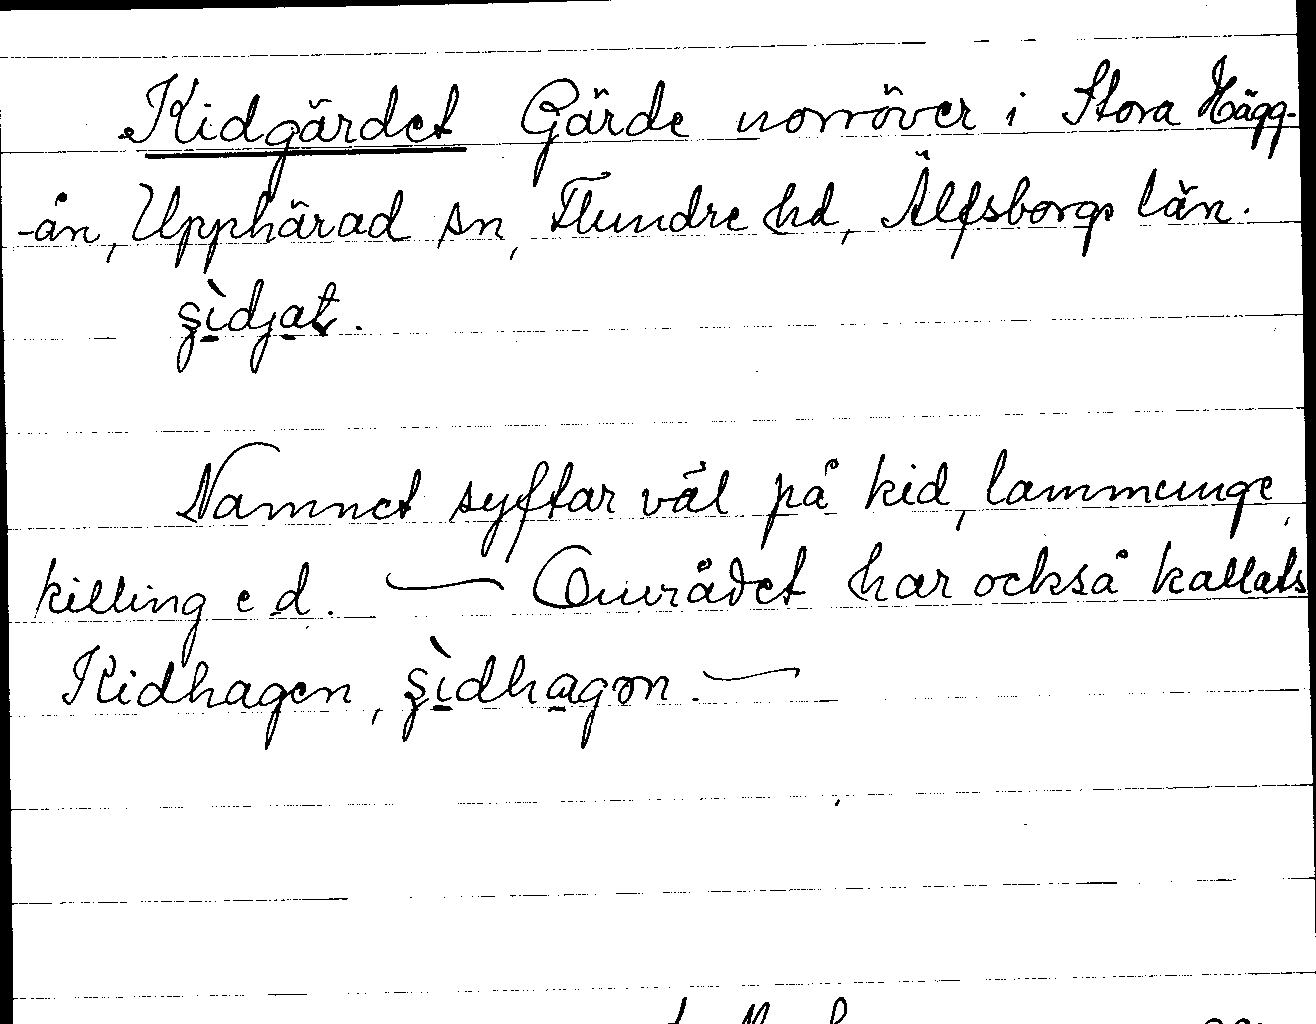 Kidgärdet Gärde norröver i Stora Hägg-
-ån, Upphärad sn, Flundre hd, Älfsborgs län.
Namnet syftar väl på kid, lammunge,
killing e d. — Området har också kallats
Kidhagen, —